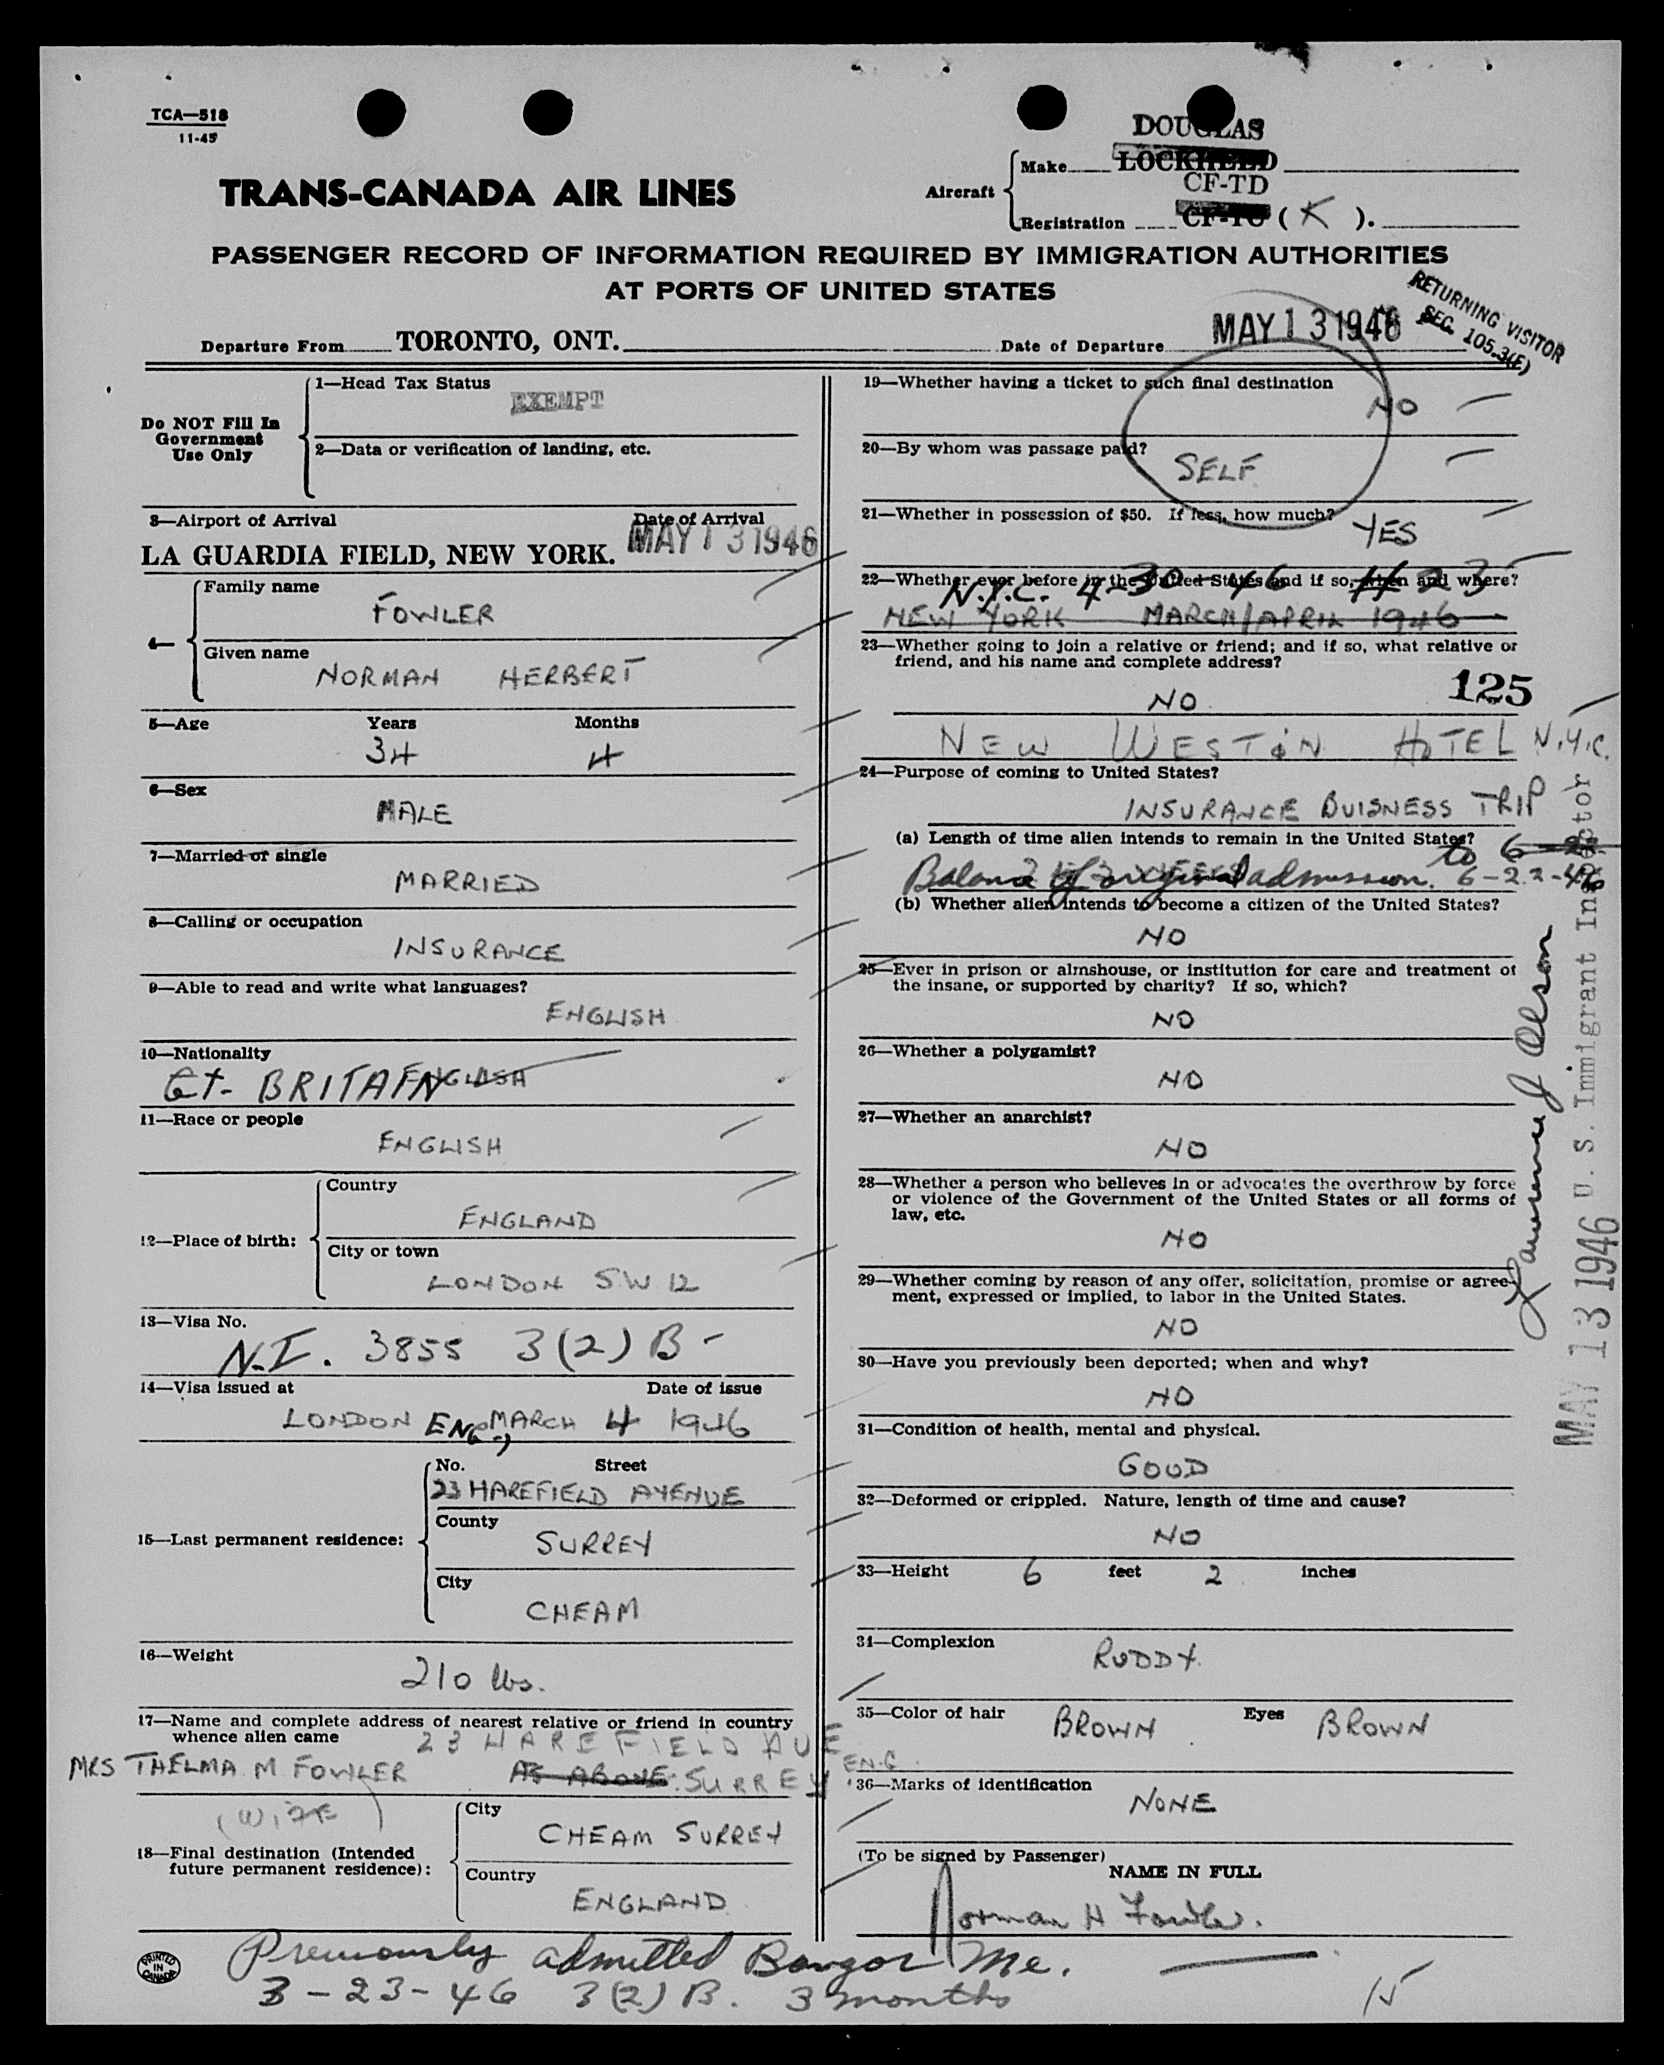 TCA—518
11-45
TRANS-CANADA AIR LINES
Aircraft
DOUGLAS
Make LOCKHEED
CF-TD
Registration CF-TC ( K ).
PASSENGER RECORD OF INFORMATION REQUIRED BY IMMIGRATION AUTHORITIES
AT PORTS OF UNITED STATES
RETURNING VISITOR
SEC. 105.3(F)
Departure From TORONTO, ONT. Date of Departure MAY 13 1946
Do NOT Fill In
Government
Use Only
1—Head Tax Status
EXEMPT
2—Data or verification of landing, etc.
3—Airport of Arrival Date of Arrival
LA GUARDIA FIELD, NEW YORK. MAY 13 1946
4—
Family name
FOWLER
Given name
NORMAN HERBERT
5—Age Years Months
34 4
6—Sex
MALE
7—Married or single
MARRIED
8—Calling or occupation
INSURANCE
9—Able to read and write what languages?
ENGLISH
10—Nationality
Gt. BRITAIN ENGLISH
11—Race or people
ENGLISH
12—Place of birth:
Country
ENGLAND
City or town
LONDON S.W 12
13—Visa No.
N.I. 3855 3(2) B -
14—Visa issued at Date of issue
LONDON ENG., MARCH 4 1946
15—Last permanent residence:
No. Street
23 HAREFIELD AVENUE
County
SURREY
City
CHEAM
16—Weight
210 lbs.
17—Name and complete address of nearest relative or friend in country
whence alien came
23 HAREFIELD AVE
MRS THELMA M FOWLER AS ABOVE. SURREY ENG.
(WIFE)
18—Final destination (Intended
future permanent residence):
City
CHEAM SURREY
Country
ENGLAND
19—Whether having a ticket to such final destination
NO
20—By whom was passage paid?
SELF
21—Whether in possession of $50. If less, how much?
YES
22—Whether ever before in the United States and if so, when and where?
N.Y.C. 4-30-46 23
NEW YORK MARCH/APRIL 1946
23—Whether going to join a relative or friend; and if so, what relative or
friend, and his name and complete address?
NO
125
NEW WESTON HOTEL N.Y.C.
24—Purpose of coming to United States?
INSURANCE BUISNESS TRIP
(a) Length of time alien intends to remain in the United States?
to 6-22
Balance of original admission. 6-22-46
(b) Whether alien intends to become a citizen of the United States?
NO
25—Ever in prison or almshouse, or institution for care and treatment of
the insane, or supported by charity? If so, which?
NO
26—Whether a polygamist?
NO
27—Whether an anarchist?
NO
28—Whether a person who believes in or advocates the overthrow by force
or violence of the Government of the United States or all forms of
law, etc.
NO
29—Whether coming by reason of any offer, solicitation, promise or agree-
ment, expressed or implied, to labor in the United States.
NO
30—Have you previously been deported; when and why?
NO
31—Condition of health, mental and physical.
GOOD
32—Deformed or crippled. Nature, length of time and cause?
NO
33—Height 6 feet 2 inches
34—Complexion
RUDDY.
35—Color of hair BROWN Eyes BROWN
36—Marks of identification
NONE
(To be signed by Passenger)
NAME IN FULL
Norman H Fowler.
Lawrence J Olson
MAY 13 1946 U. S. Immigrant Inspector
PRINTED
IN
CANADA
Previously admitted Bangor Me.
3-23-46 3(2) B. 3 months